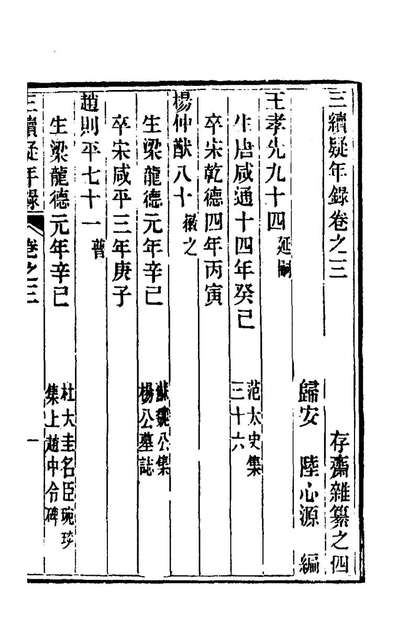 三續疑年錄卷之三 存齋雜纂之四
歸安 陸心源 編
王孝先九十四 延嗣
生唐咸通十四年癸巳 范太史集三十六
卒宋乾德四年丙寅
楊仲猷八十 徽之
生梁龍德元年辛巳 蘇魏公集楊公墓誌
卒宋咸平三年庚子
趙則平七十一 普
生梁龍德元年辛巳 杜大圭名臣琬琰集上趙中令碑
三續疑年錄 卷之三 一